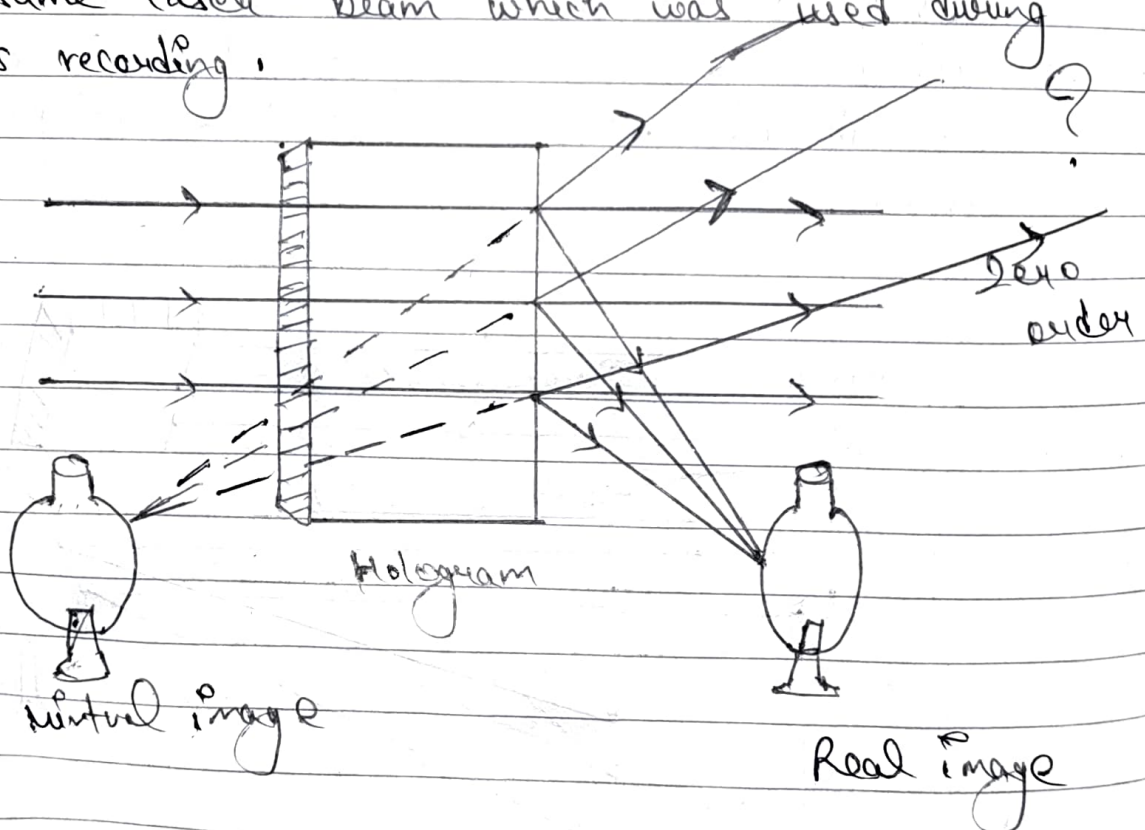 same laser beam which was used during
s recording.
?
Zero
order
Hologram
virtual image
Real image